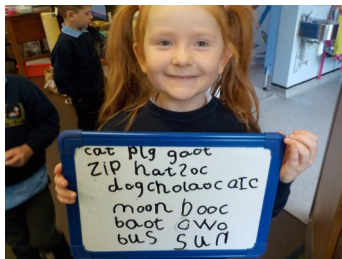 cat pig gaot
zip hatsoc
dogcholaocaIc
moon booc
baot owo
bus sun